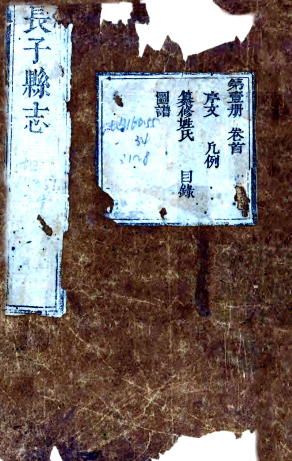 長子縣志
第壹册 卷首
序文 凡例
纂修姓氏 目錄
圖譜